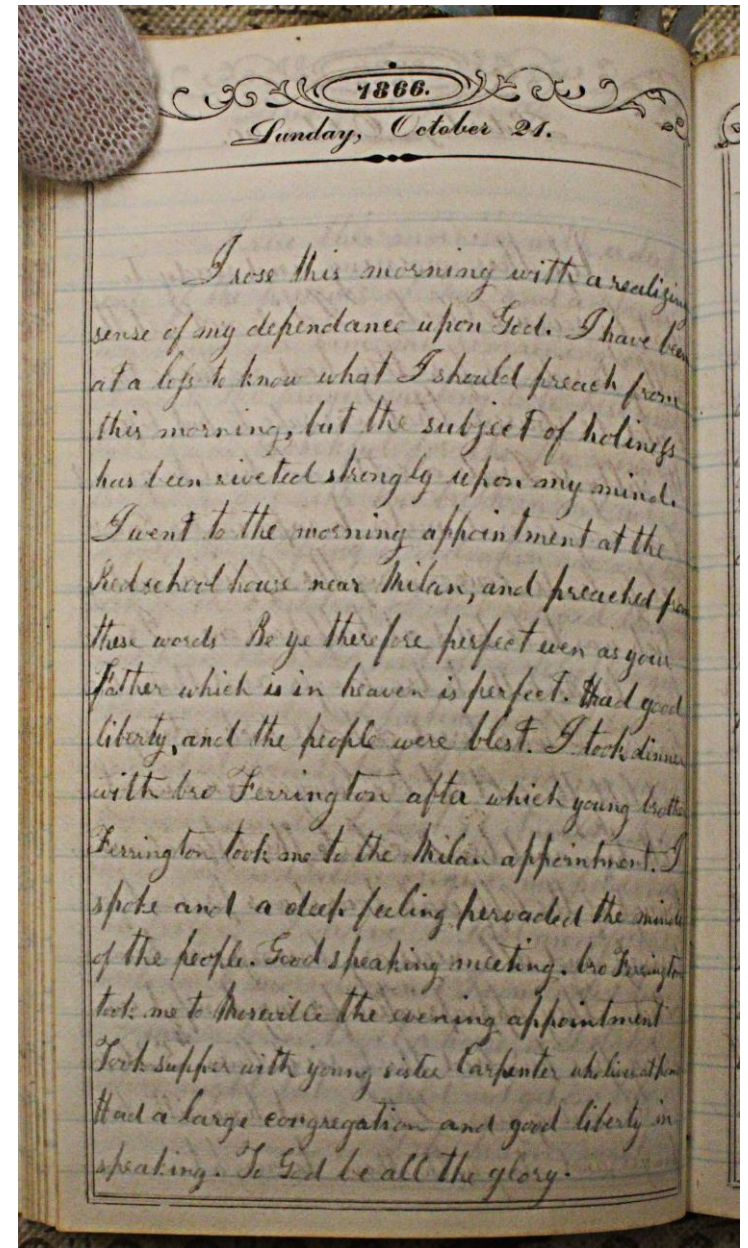 1866.
Sunday, October 21.
I rose this morning with a realizing
sense of my dependance upon God. I have been
at a loss to know what I should preach from
this morning, but the subject of holiness
has been riveted strongly upon my mind.
I went to the morning appointment at the
Red school house near Milan, and preached from
these words Be ye therefore perfect even as your
Father which is in heaven is perfect. Had good
liberty, and the people were blest. I took dinner
with bro Ferrington after which young brother
Ferrington took me to the Milan appointment. I
spoke and a deep feeling pervaded the minds
of the people. Good speaking meeting. bro Ferrington
took me to the evening appointment
Took supper with young sister Carpenter who lives at
Had a large congregation and good liberty in
speaking. To God be all the glory.